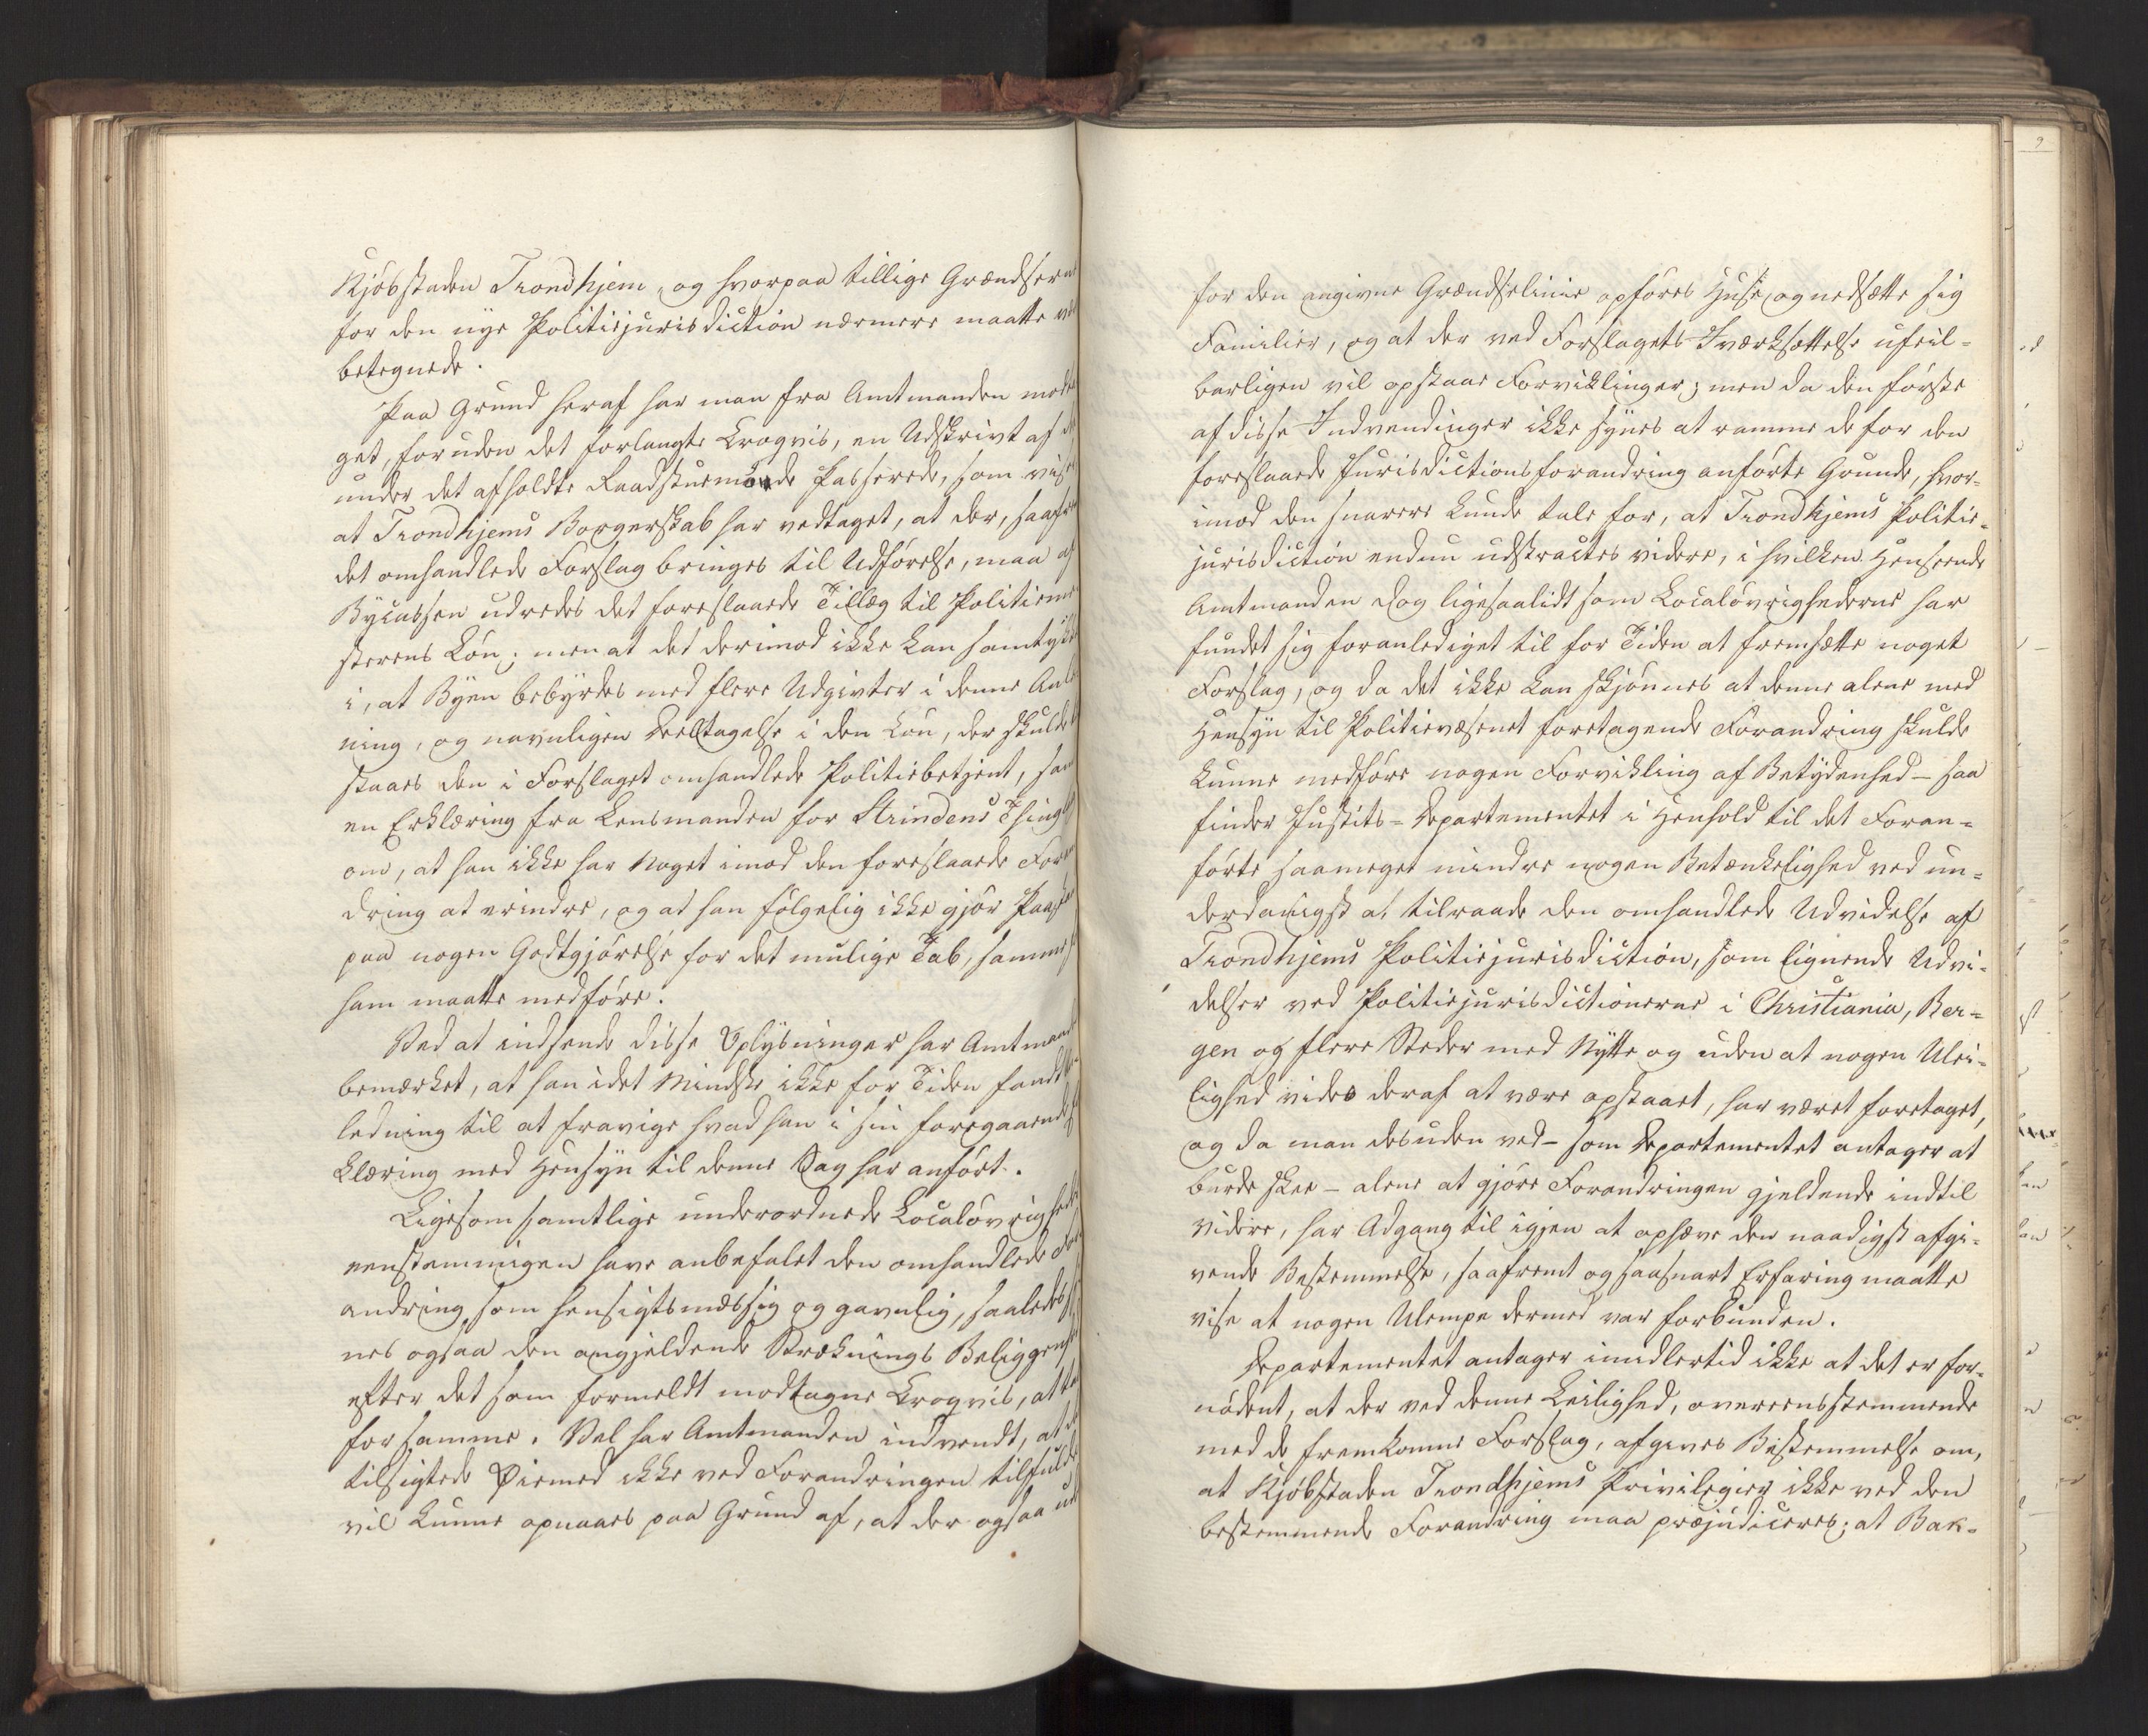 Kjöbstaden Trondhjem, og hvorpaa tillige Grændserne
for den nye Politiejurisdiction nærmere maatte
betegnede.
Paa Grund heraf har man fra Amtmanden
get, foruden det forlangte Croqvis, en Udskrivt af
under det afholdte Raadstuemöde Passerede, som viser
at Trondhjems Borgerskab har vedtaget, at der, saafremt
det omhandlede Forslag bringes til Udförelse, maa af
Bycassen udredes det foreslaaede Tillæg til Politieme-
sterens Lön; men at det derimod ikke kan samtykkes
i, at Byen bebyrdes med flere Udgivter i denne Anled-
ning, og navnligen Deeltagelse i den Lön, der skulde
staaes den i Forslaget omhandlede Politiebetjent, samt
en Erklæring fra Lensmanden for Strindens Thinglag
om, at han ikke har Noget imod den foreslaaede Foran-
dring at erindre, og at han fölgelig ikke gjör Paastand
paa nogen Godtgjörelse for det mulige Tab, samme
ham maatte medföre.
Ved at indsende disse Oplysninger har Amtmanden
bemærket, at han i det Mindste ikke for Tiden fandt
ledning til at fravige hvad han i sin foregaaende
klæring med Hensyn til denne Sag har anfört.
Ligesom samtlige underordnede Localövrigheder
eenstemmigen have anbefalet den omhandlede For-
andring som hensigtsmæssig og gavnlig, saaledes
nes ogsaa den angjeldende Stræknings Beliggenhed
efter det som formeldt modtagne Croqvis, at tale
for samme. Vel har Amtmanden indvendt, at det
tilsigtede Öiemed ikke ved Forandringen tilfulde
vil kunne opnaaes paa Grund af, at der ogsaa
for den angivne Grændselinie opföres Huse og nedsætte sig
Familier, og at der ved Forslagets Iværksættelse ufeil-
barligen vil opstaae Forviklinger; men da den förste
af disse Indvendinger ikke synes at ramme de for den
foreslaaede Jurisdictionsforandring anförte Grunde, hvor-
imod den snarere kunde tale for, at Trondhjems Politie-
jurisdiction endnu udstractes videre, i hvilken Henseende
Amtmanden dog ligesaalidt som Localövrighederne har
fundet sig foranlediget til for Tiden at fremsætte noget
Forslag, og da det ikke kan skjönnes at denne alene med
Hensyn til Politievæsenet foretagende Forandring skulde
kunne medföre nogen Forvikling af Betydenhed – saa
finder Justits-Departementet i Henhold til det Foran-
förte saameget mindre nogen Betænkelighed ved un-
derdanigst at tilraade den omhandlede Udvidelse af
Trondhjems Politiejurisdiction, som lignende Udvi-
delser ved Politiejurisdictionerne i Christiania, Ber-
gen og flere Steder med Nytte og uden at nogen Ulei-
lighed vides deraf at være opstaaet, har været foretaget,
og da man desuden ved – som Departementet antager at
burde skee – alene at gjöre Forandringen gjeldende indtil
videre, har Adgang til igjen at ophæve den naadigst afgi-
vende Bestemmelse, saafremt og saasnart Erfaring maatte
vise at nogen Ulempe dermed var forbunden.
Departementet antager imidlertid ikke at det er for-
nödent, at der ved denne Leilighed, overeensstemmende
med de fremkomne Forslag, afgives Bestemmelse om,
at Kjöbstaden Trondhjems Privilegier ikke ved den
bestemmende Forandring maa præjudiceres; at Bak-